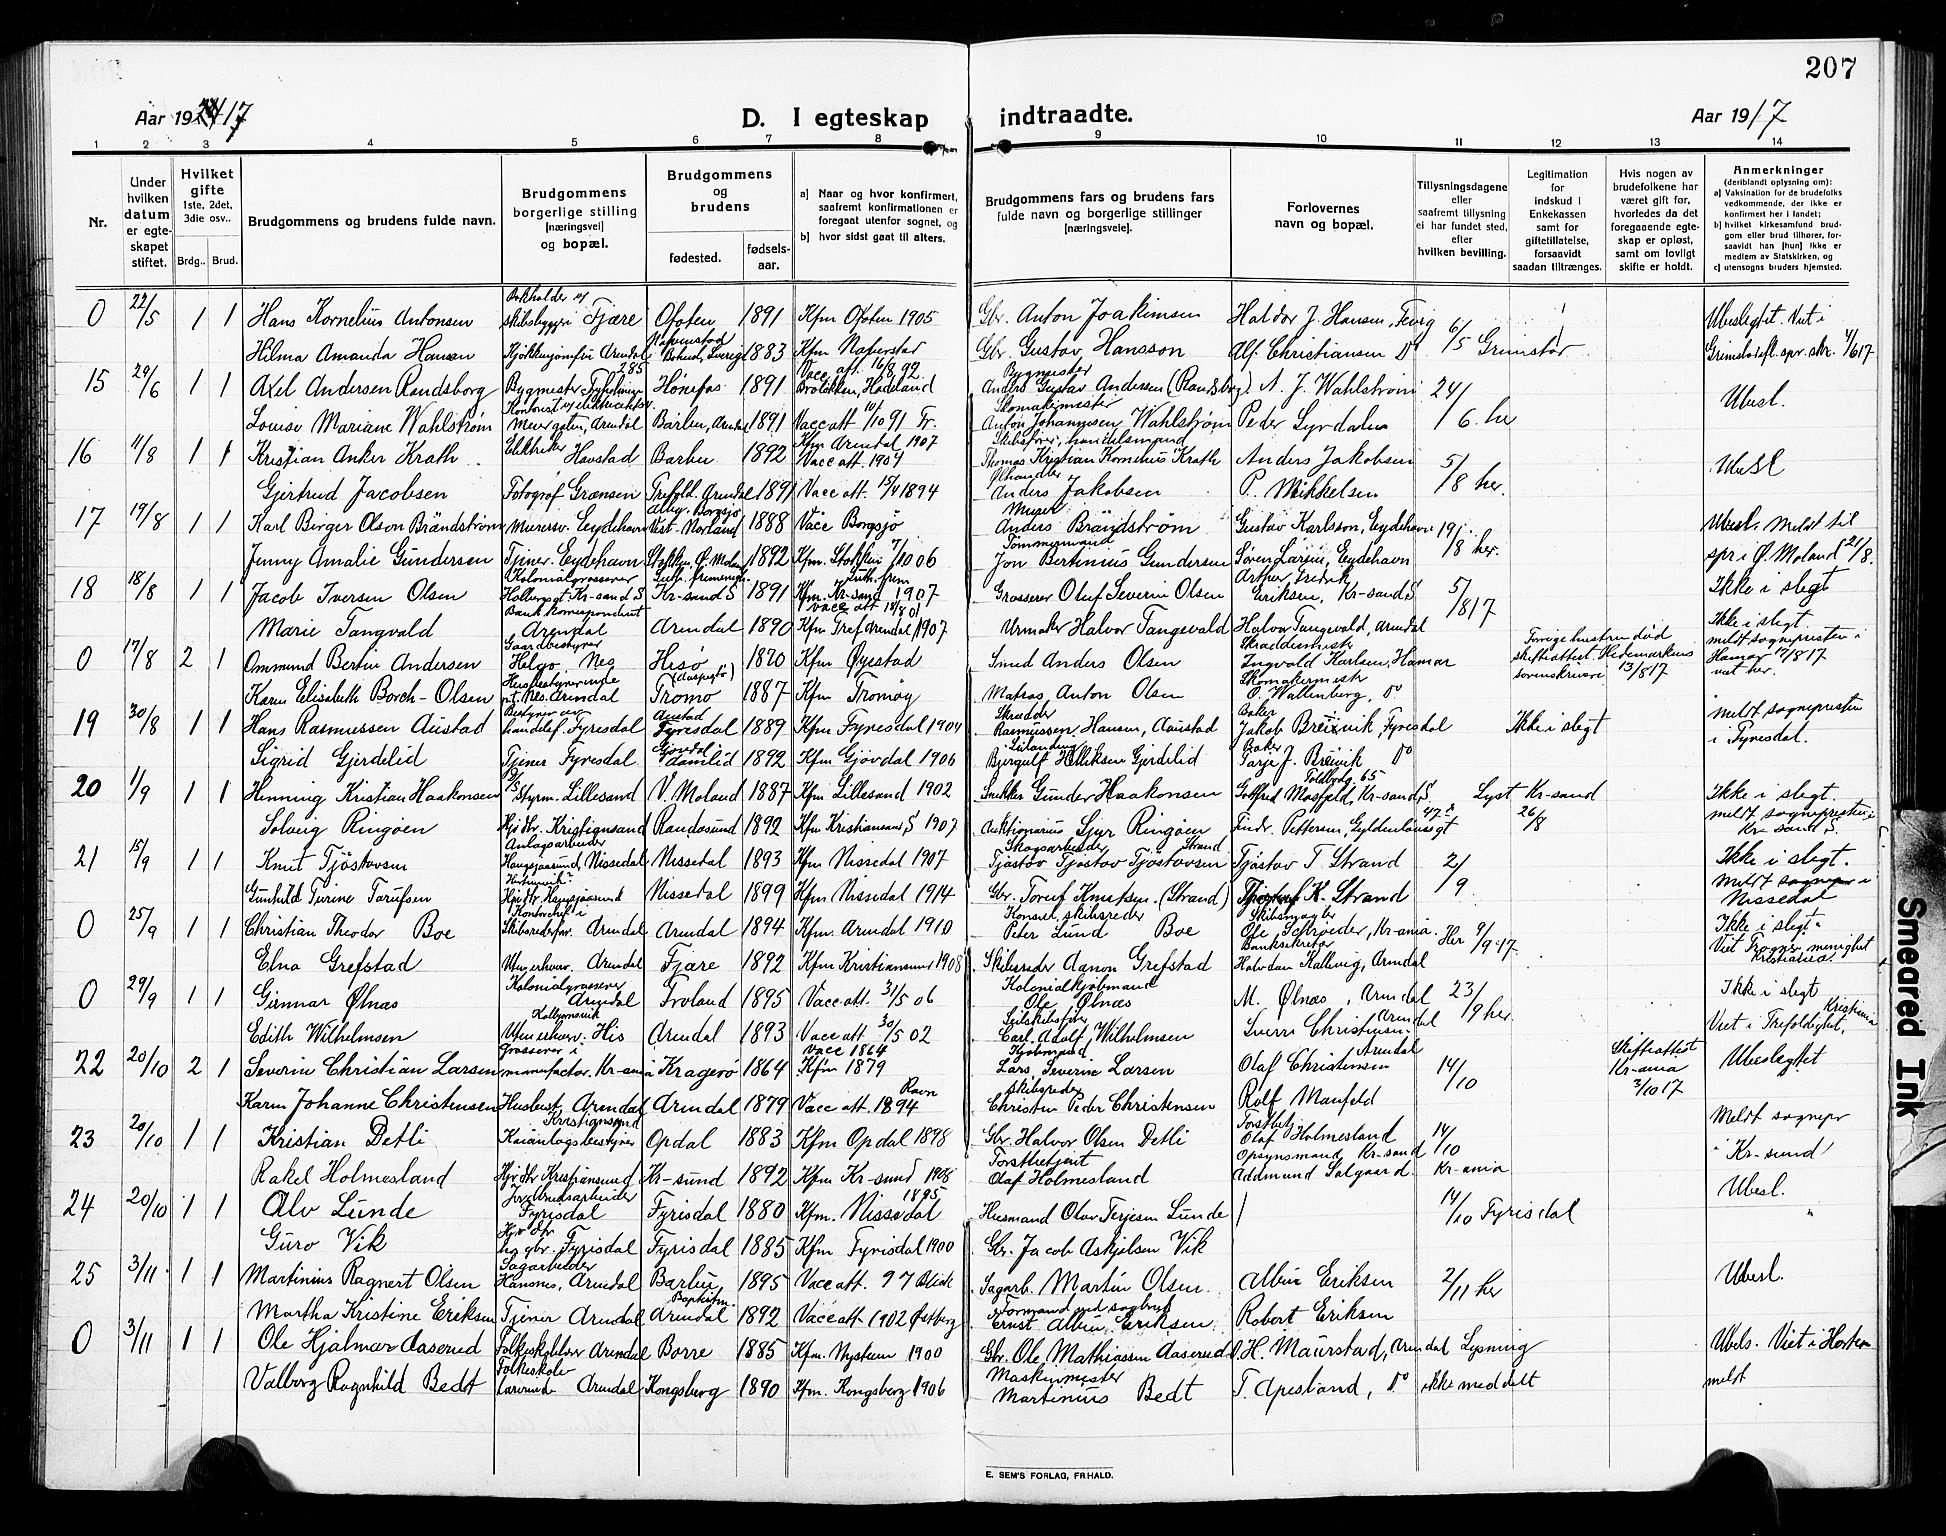 207
Aar 1917
D. I egteskap indtraadte.
Aar 1917
1 2 3 4 5 6 7 8 9 10 11 12 13 14
Nr.
Under hvilken datum er egteskapet stiftet.
Hvilket gifte 1ste, 2det, 3die osv..
Brdg.. Brud.
Brudgommens og brudens fulde navn.
Brudgommens borgerlige stilling [næringsvei] og bopæl.
Brudgommens og brudens
fødested. fødselsaar.
a) Naar og hvor konfirmert, saafremt konfirmationen er foregaat utenfor sognet, og
b) hvor sidst gaat til alters.
Brudgommens fars og brudens fars fulde navn og borgerlige stillinger [næringsveie].
Forlovernes navn og bopæl.
Tillysningsdagene eller saafremt tillysning ei har fundet sted, efter hvilken bevilling.
Legitimation for indskud i Enkekassen samt for giftetillatelse, forsaavidt saadan tiltrænges.
Hvis nogen av brudefolkene har været gift før, hvorledes da det foregaaende egteskap er opløst, samt om lovligt skifte er holdt.
Anmerkninger (deriblandt oplysning om): a) Vaksination for de brudefolks vedkommende, der ikke er konfirmert her i landet; b) hvilket kirkesamfund brudgom eller brud tilhører, forsaavidt han [hun] ikke er medlem av Statskirken, og c) utensogns bruders hjemsted.
0 22/5 1 1 Hans Kornelius Antonsen skibsbyggeri Fjære Ofoten 1891 Kfm Ofoten 1905 Gbr. Anton Joakimsen Haldor J. Hansen, Fevig 6/5 Grimstad Ubeslegtet. Viet i
Hilma Amanda Hansen Arendal 1883 Kfm Naverstad Gbr. Gustav Hansson Alf. Christiansen Do
15 29/6 1 1 Axel Andersen Randsborg Bygmester Hönefos 1891 Anders Gustav Andersen (Randsborg) A. J. Wahlström 24/6. her Ubesl.
Louise Mariane Wahlström Arendal Barbu, Arendal 1891 Vacc att 10/10 91 Skomakermester Anton Johannesen Wahlström Peder Lyrdalen
16 11/8 1 1 Kristian Anker Krath Elektriker Havstad Barbu 1892 Kfm Arendal 1907 Vacc att. 1904 Thomas Kristian Kornelius Krath Anders Jakobsen 5/8 her. Ubesl
Gjertrud Jacobsen Fotograf Grænsen Trefold. Arendal 1891 Vacc att. 15/4 1894 Anders Jakobsen P. Mikkelsen
17 19/8 1 1 Karl Birger Olson Brändström Murersv. Eydehavn Vest. Norland 1888 Vacc Borgsjö Murer Anders Brändström Gustav Karlsson, Eydehavn 19/8 her. Ubesl. Meldt til
Jenny Amalie Gundersen Tjener. Eydehavn Stokken Ø. Moland 1892 Kfm. Stokken 7/10 06 Tømmermand Jon Bertinius Gundersen Søren Larsen, Eydehavn spr i Ø. Moland 21/8.
18 18/8 1 1 Jacob Iversen Olsen Kolonialgrosserer Kr-sand S Kr-sand S 1891 Kfm. Kr-sand 1907 Grosserer Oluf Severin Olsen Arthur Fredrik Eriksen, Kr-sand S 5/8 17 Ikke i slegt
Marie Tangvald Bank korrespondent Arendal Arendal 1890 Kfm Tref Arendal 1907 Urmaker Halvor Tangevald Halvor Tangevald, Arendal Ikke i slegt.
0 17/8 2 1 Ommund Bertin Andersen Gaardbestyrer Helgø, Nes Hisö 1870 Kfm Øyestad Smed Anders Olsen Ingvald Karlsen, Hamar 13/8 17 meldt sognepresten i Hamar 17/8 17 viet her.
Karen Elisabeth Borch-Olsen Nes. Arendal Tromö 1887 Kfm Tromöy Matros Anton Olsen O. Wallenberg, Do
19 30/8 1 1 Hans Rasmussen Austad handelsf. Fyresdal Fyresdal 1889 Kfm Fyresdal 1904 Skrædder Rasmussen Hansen, Aaustad Baker Jakob Breivik, Fyresdal Ikke i slegt meldt sognepresten
Sigrid Gjerdelid Tjener Fyresdal Gjövdal 1892 Kfm Gjövdal 1906 Bjergulf Helliksen Gjerdelid Baker Tarje J. Breivik Do i Fyresdal.
20 1/9 1 1 Henning Kristian Haakonsen Styrm. Lillesand V. Moland 1887 Kfm Lillesand 1902 Snekker Gunder Haakonsen Gotfred Mosfjeld, Kr-sand S Lyst Kr-sand Ikke i slegt.
Solveig Ringöen Hjv dtr. Kristiansand Randesund 1892 Kfm Kristiansand S 1907 Auktionarius Sjur Ringöen Fredr. Pettersen, Gyldenløvesgt 26/8 meldt sognepresten i Kr sand S.
21 15/9 1 1 Knut Tjöstovsen Anlagsarbeider Haugsjaasund, Nissedal Nissedal 1893 Kfm Nissedal 1907 Skogsarbeider Tjöstov Tjöstovsen Strand Tjöstov T Strand 2/9 Ikke i slegt.
Gunhild Turine Torüfsen Hjv dtr. Haugsjaasund Nissedal 1899 Kfm Nissedal 1914 Gbr. Toruf Knutsen (Strand) K. Strand Meldt sognepr i Nissedal
0 25/9 1 1 Christian Theodor Boe Kontorchef i Skibsrederfor. Arendal Arendal 1894 Kfm. Arendal 1910 Konsul, skibsreder Peter Lund Boe Skibsmægler Ole Schröeder, Kr-ania. Her 9/9 17. Ikke i slegt
Elna Grefstad Uten erhverv. Arendal Fjære 1892 Kfm Kristiansund 1908 Skibsreder Aanon Grefstad Banksekretær Halvdan Kallevig, Arendal Viet Frogner menighet Kristiania
0 29/9 1 1 Gunnar Ølnæs Kolonialgrosserer Arendal Froland 1895 Vacc att. 31/5 06 Kolonialkjöbmand Ole Ølnæs M. Ølnæs, Arendal 23/9 her Ikke i slegt
Edith Wilhelmsen Uten erhverv. His Arendal 1893 Vacc att 30/5 02 Seilskibsfører Carl Adolf Wilhelmsen Sverre Christensen Arendal Viet i Trefoldighet, Kristiania
22 20/10 2 1 Severin Christian Larsen Grosserer i manufactur. Kr-ania Kragerö 1864 Vacc 1864 Kfm 1879 Kjöbmand Lars Severin Larsen Olaf Christensen Arendal 14/10 Skifteattest Kr-ania 3/10 17 Ubeslegtet
Karen Johanne Christensen Husbest. Arendal Arendal 1879 Vacc att. 1894 Ravn Skibsreder Christen Peder Christensen Rolf Manfeld
23 20/10 1 1 Kristian Detli Kristiansund Kaianlægsbestyrer Opdal 1883 Kfm Opdal 1898 Gbr. Halvor Olsen Detli Olaf Holmesland 14/10 Meldt sognepr
Rakel Holmesland Hjv dtr Kristiansund Kr-sund 1892 Kfm Kr-sund 1908 Forstbetjent Olaf Holmesland Addmund Salgaard Kr-ania i Kr-sund
24 20/10 1 1 Alv Lunde Fyrisdal Fyrisdal 1880 Kfm. Nissedal 1895 Husmand Olav Terjesen Lunde 14/10 Fyrisdal Ubesl.
Guro Vik Fyrisdal Fyrisdal 1885 Kfm Fyrisdal 1900 Gbr. Jacob Askjelsen Vik
25 3/11 1 1 Martinius Ragnert Olsen Sagarbeider Hansnes, Arendal Barbu 1895 Vacc att. 97 Sagarb. Martin Olsen. Albin Eriksen 2/11 her Ubesl.
Martha Kristine Eriksen Tjener Arendal Arendal 1892 Vacc att. 1902 Østberg Formand ved sagbruk Ernst Albin Eriksen Robert Eriksen
0 3/11 1 1 Ole Hjalmar Aaserud Folkeskolelærer Arendal Borre 1885 Kfm. Nystuen 1900 Gbr. Ole Mathiassen Aaserud H. Maurstad, Arendal Lysning Ubesl. Viet i Horten
Valborg Ragnhild Bedt Folkeskole lærerinde Arendal Kongsberg 1890 Kfm. Kongsberg 1906 Maskinmester Martinius Bedt T. Apesland, Do ikke meddelt meldt
E. SEM'S FORLAG, FR.HALD.
Smeared Ink